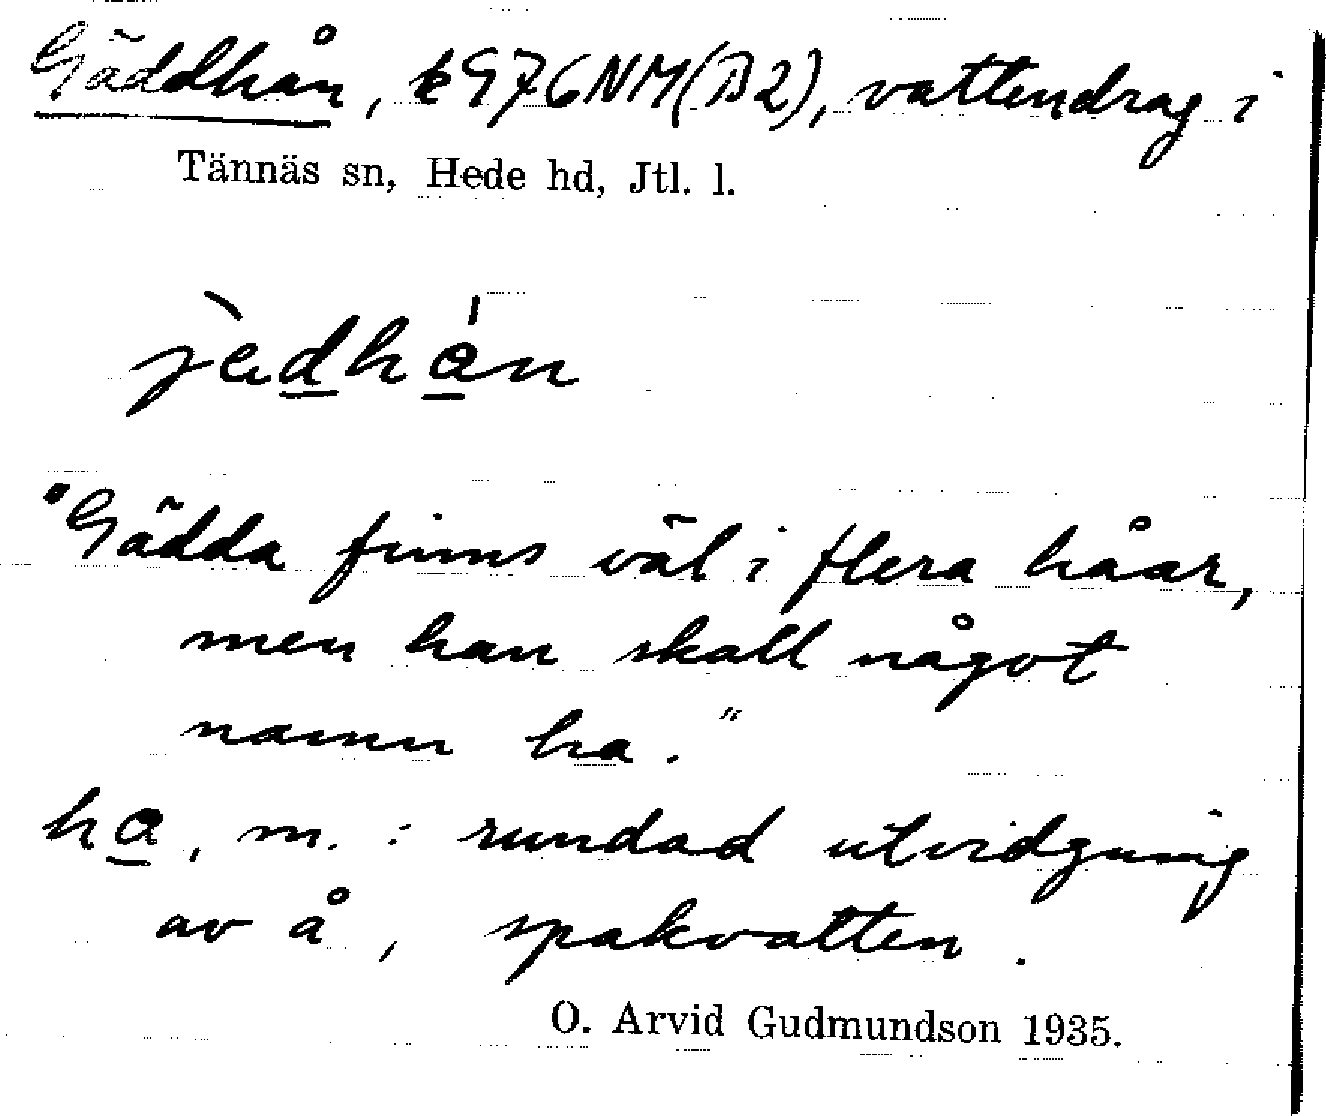 Gäddhån, k976NM(B2), vattendrag i
Tännäs sn, Hede hd, Jtl. l.
"Gädda finns väl i flera håar,
men han skall något
namn ha."
ha, m. : rundad utvidgning
av å, spakvatten.
O. Arvid Gudmundson 1935.